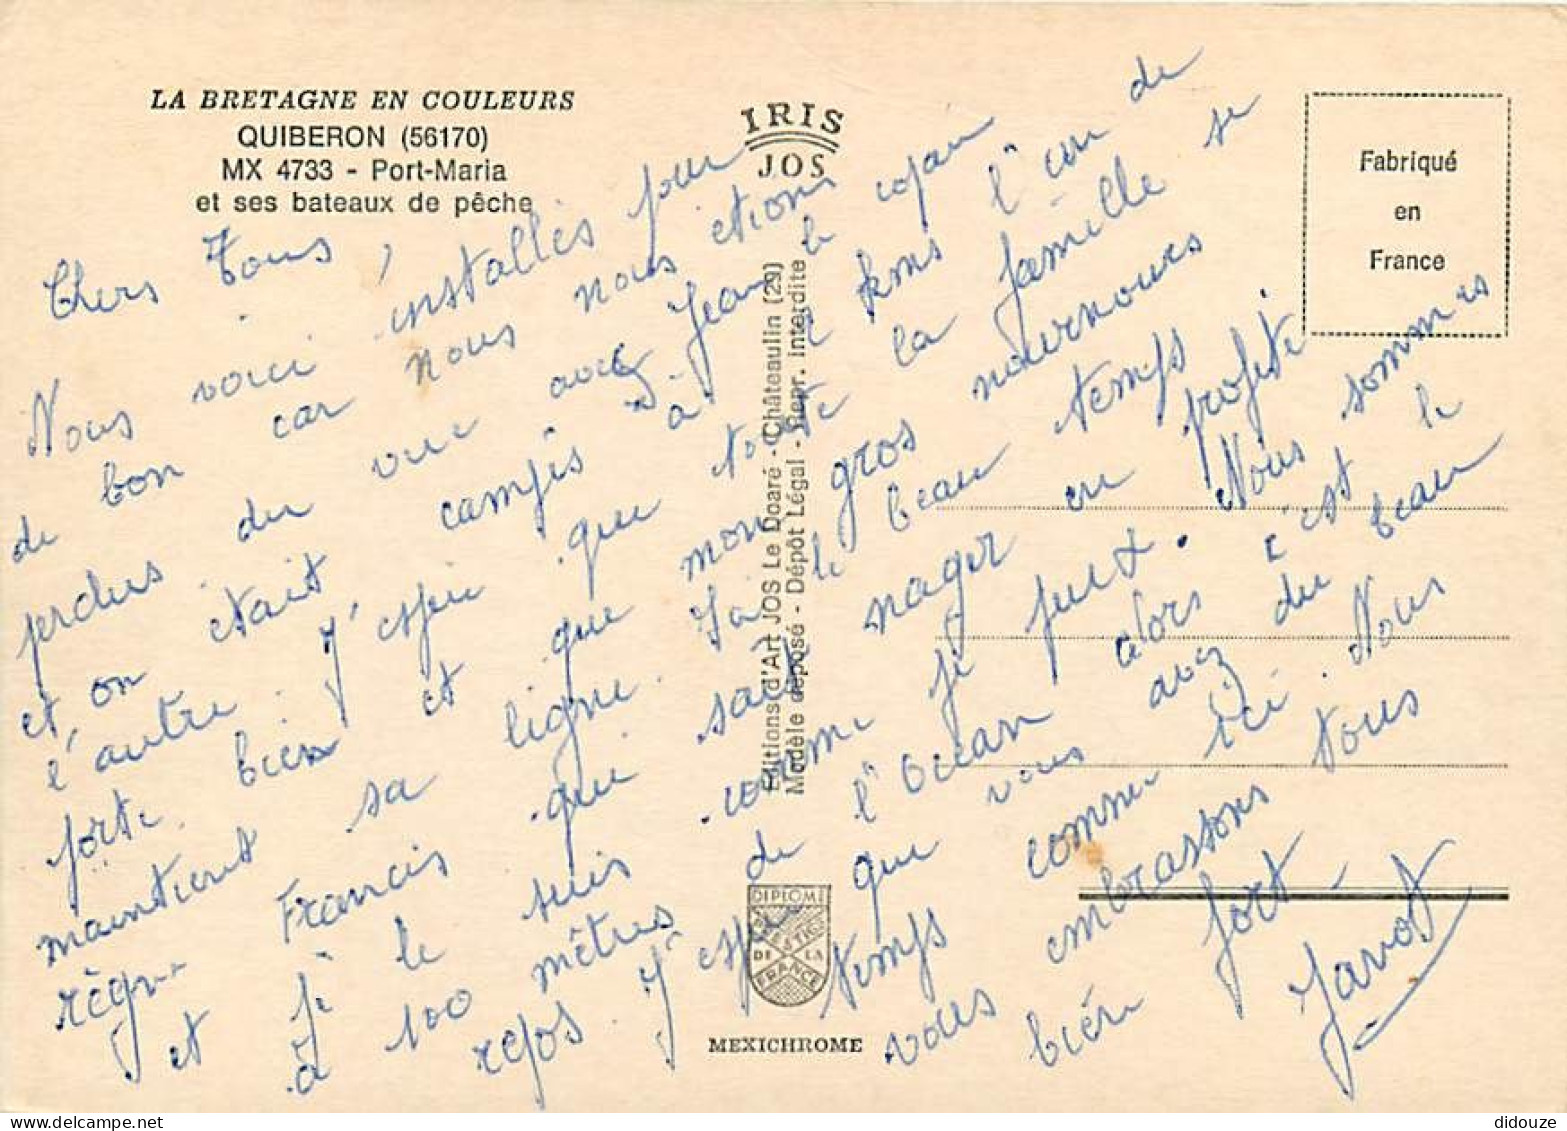 LA BRETAGNE EN COULEURS
QUIBERON (56170)
MX 4733 - Port-Maria
et ses bateaux de pêche
IRIS
JOS
Fabriqué
en
France
Editions d'Art JOS Le Doaré - Châteaulin (29)
Modèle déposé - Dépôt Légal - Repr. Interdite
DIPLOME
PRESTIGE
DE LA
FRANCE
MEXICHROME
Chers Tous,
Nous voici installés pour
de bon car nous nous étions
perdus du vue avec Jean le copain
et on était campés à 2 kms l'un de
l'autre. J'espère que toute la famille se
porte bien et que mon gros nournours
maintient sa ligne. Ici le beau temps
règne Francis qui sait nager en profite
et je le suis comme je peux. Nous sommes
à 100 mètres de l'Océan alors c'est le
repos. J'espère que vous avez du beau
temps comme ici. Nous
vous embrassons tous
bien fort -
Javot
didouze